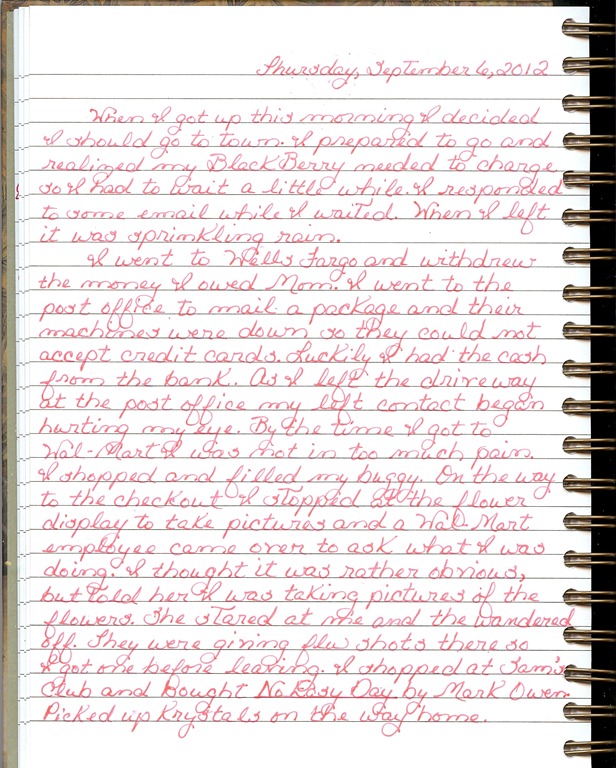 Thursday, September 6, 2012
When I got up this morning I decided
I should go to town. I prepared to go and
realized my BlackBerry needed to charge
so I had to wait a little while. I responded
to some email while I waited. When I left
it was sprinkling rain.
I went to Wells Fargo and withdrew
the money I owed Mom. I went to the
post office to mail a package and their
machines were down so they could not
accept credit cards. Luckily I had the cash
from the bank. As I left the driveway
at the post office my left contact began
hurting my eye. By the time I got to
Wal-Mart I was not in too much pain.
I shopped and filled my buggy. On the way
to the checkout I stopped at the flower
display to take pictures and a Wal-Mart
employee came over to ask what I was
doing. I thought it was rather obvious,
but told her I was taking pictures of the
flowers. She stared at me and the wandered
off. They were giving flu shots there so
I got one before leaving. I shopped at Sam's
Club and bought No Easy Day by Mark Owen.
Picked up Krystals on the way home.